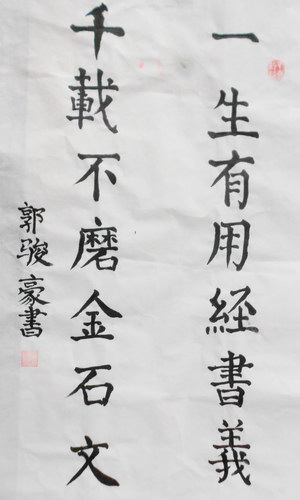 一生有用経書義
千載不磨金石文
郭骏豪書